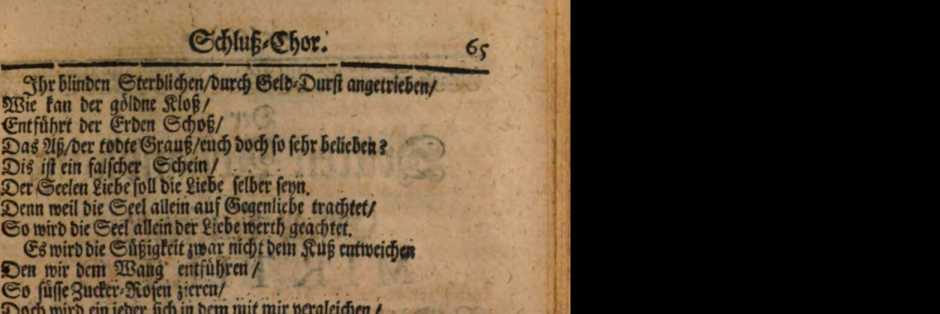 Schluß-Chor. 65
Ihr blinden Sterblichen/durch Geld-Durst angetrieben/
Wie kan der göldne Kloß/
Entführt der Erden Schoß/
Das Aß/der todte Grauß/euch doch so sehr belieben?
Dis ist ein falscher Schein/
Der Seelen Liebe soll die Liebe selber seyn.
Denn weil die Seel allein auf Gegenliebe trachtet/
So wird die Seel allein der Liebe werth geachtet.
Es wird die Süßigkeit zwar nicht dem Kuß entweichen
Den wir dem Wang entführen/
So süsse Zucker-Rosen zieren/
Doch wird ein jeder sich in dem mit mir vergleichen/